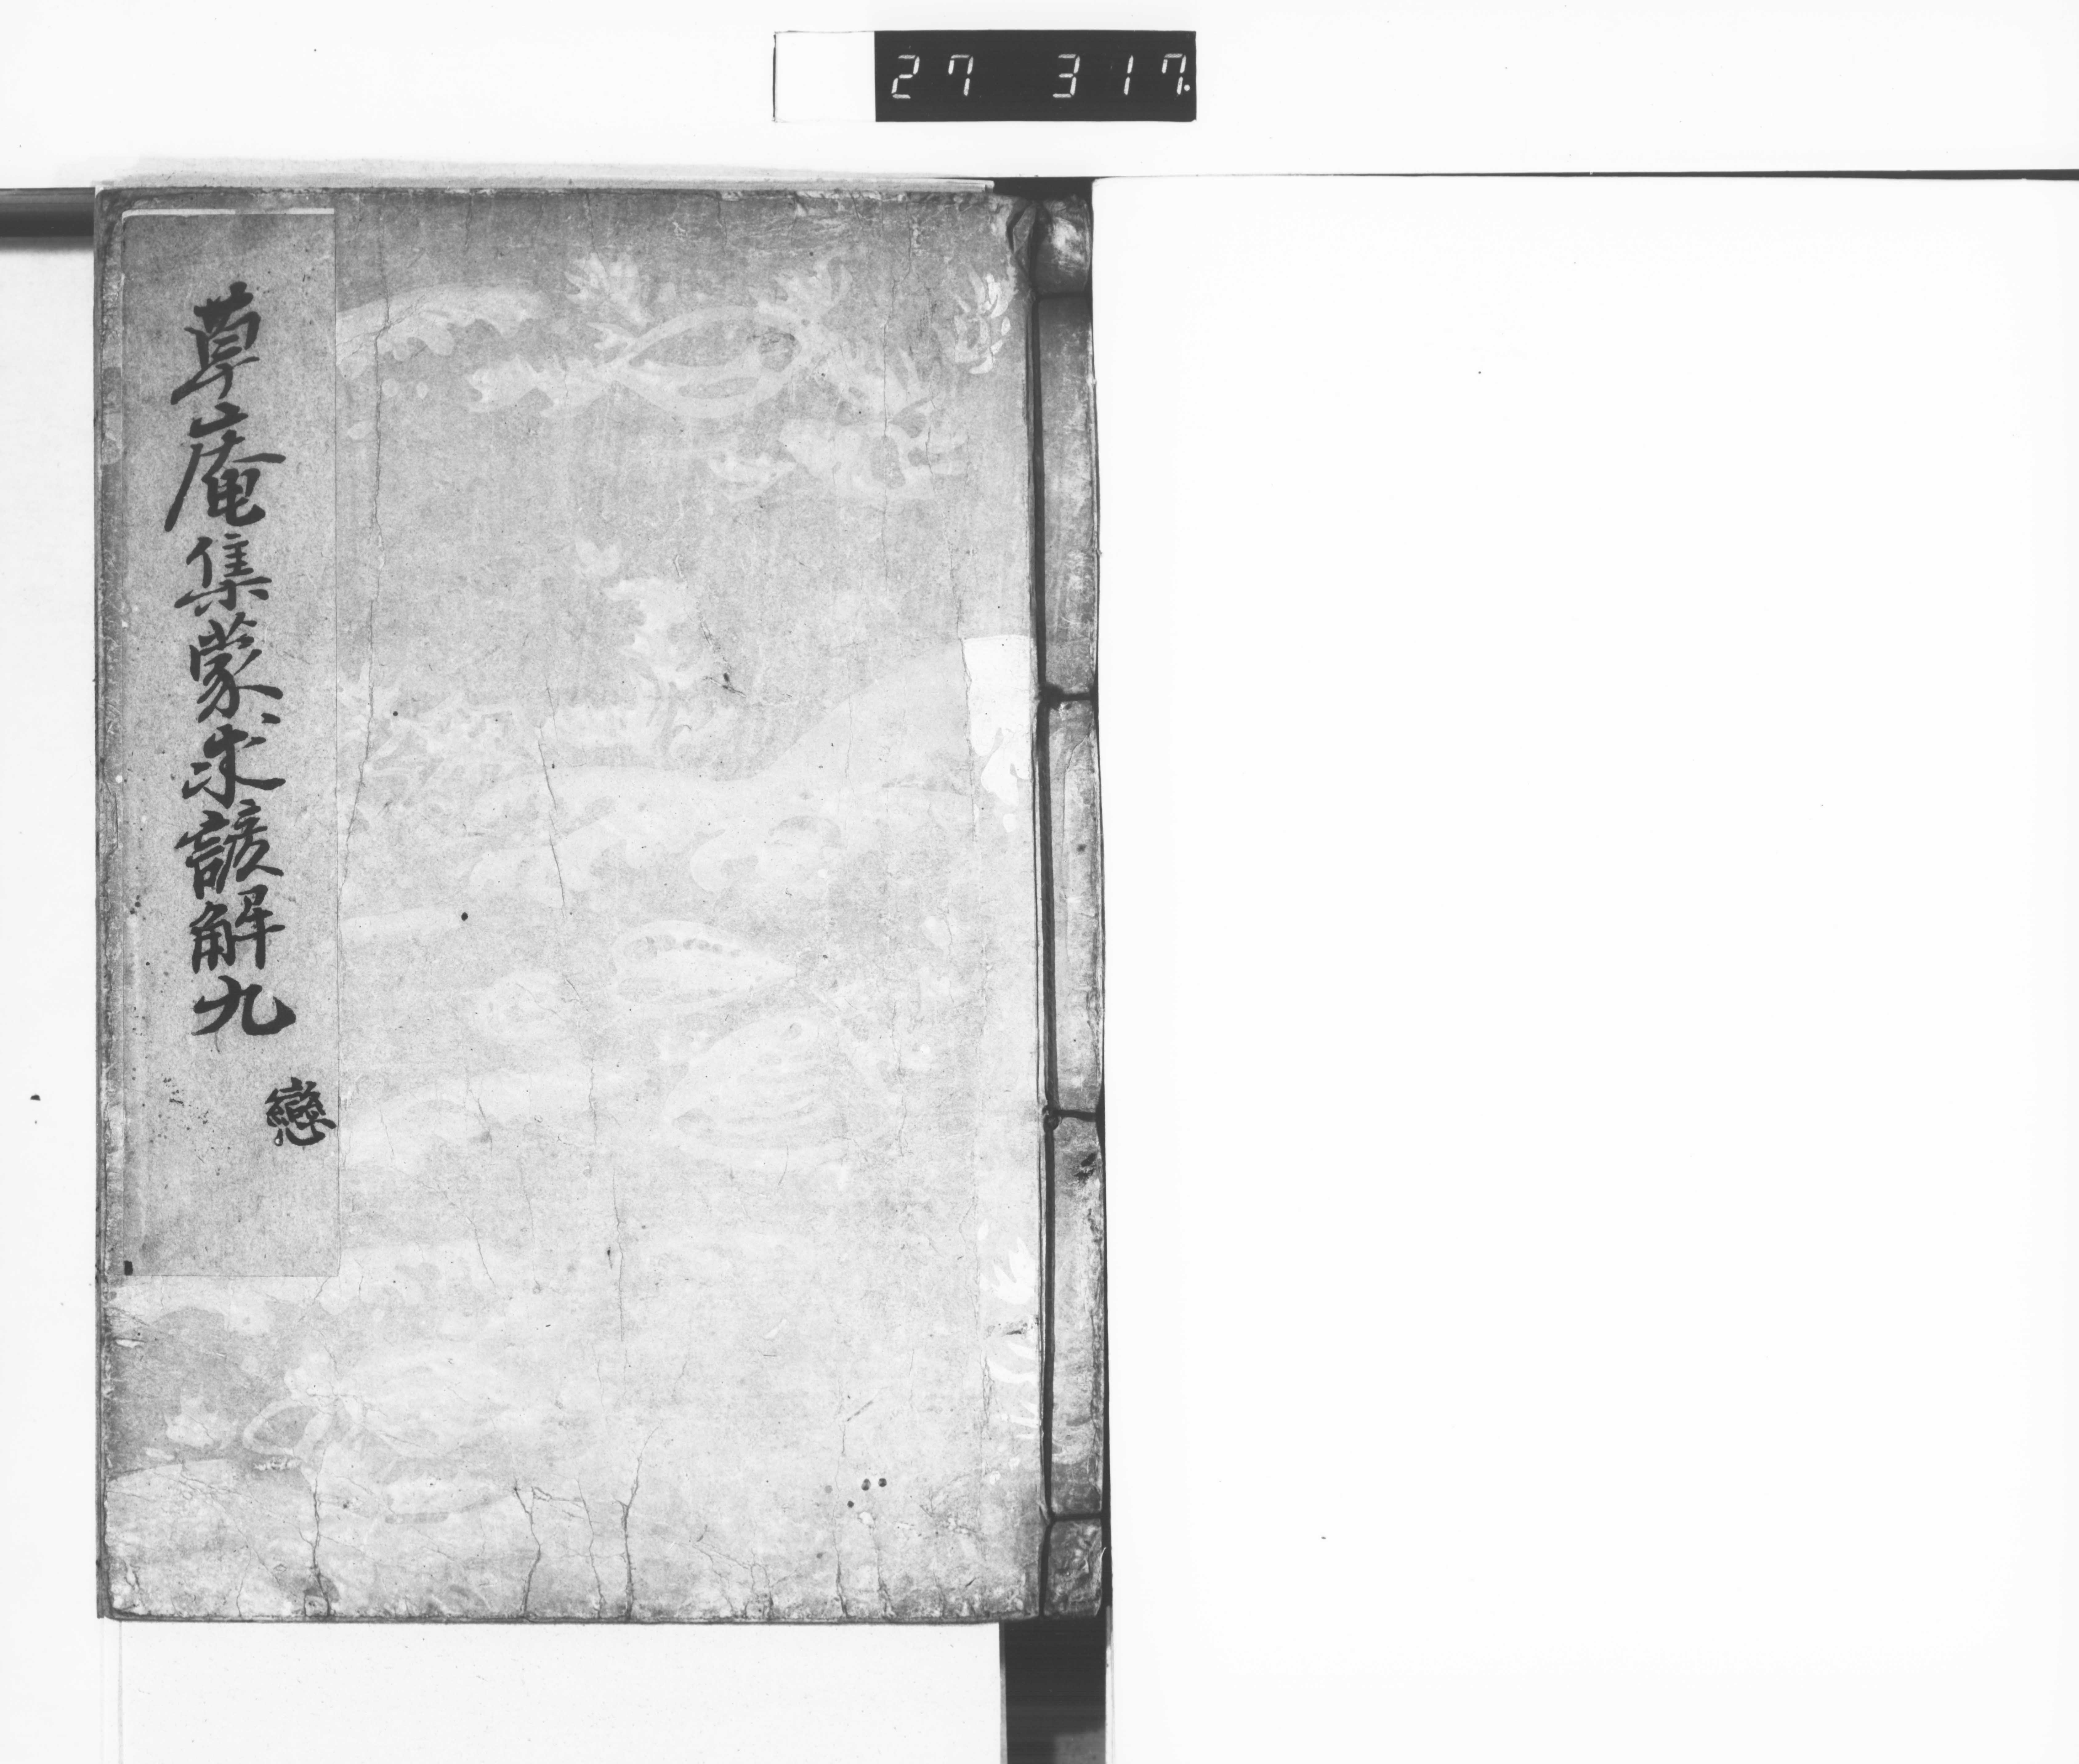 27 317.
草菴集蒙求諺解九
戀